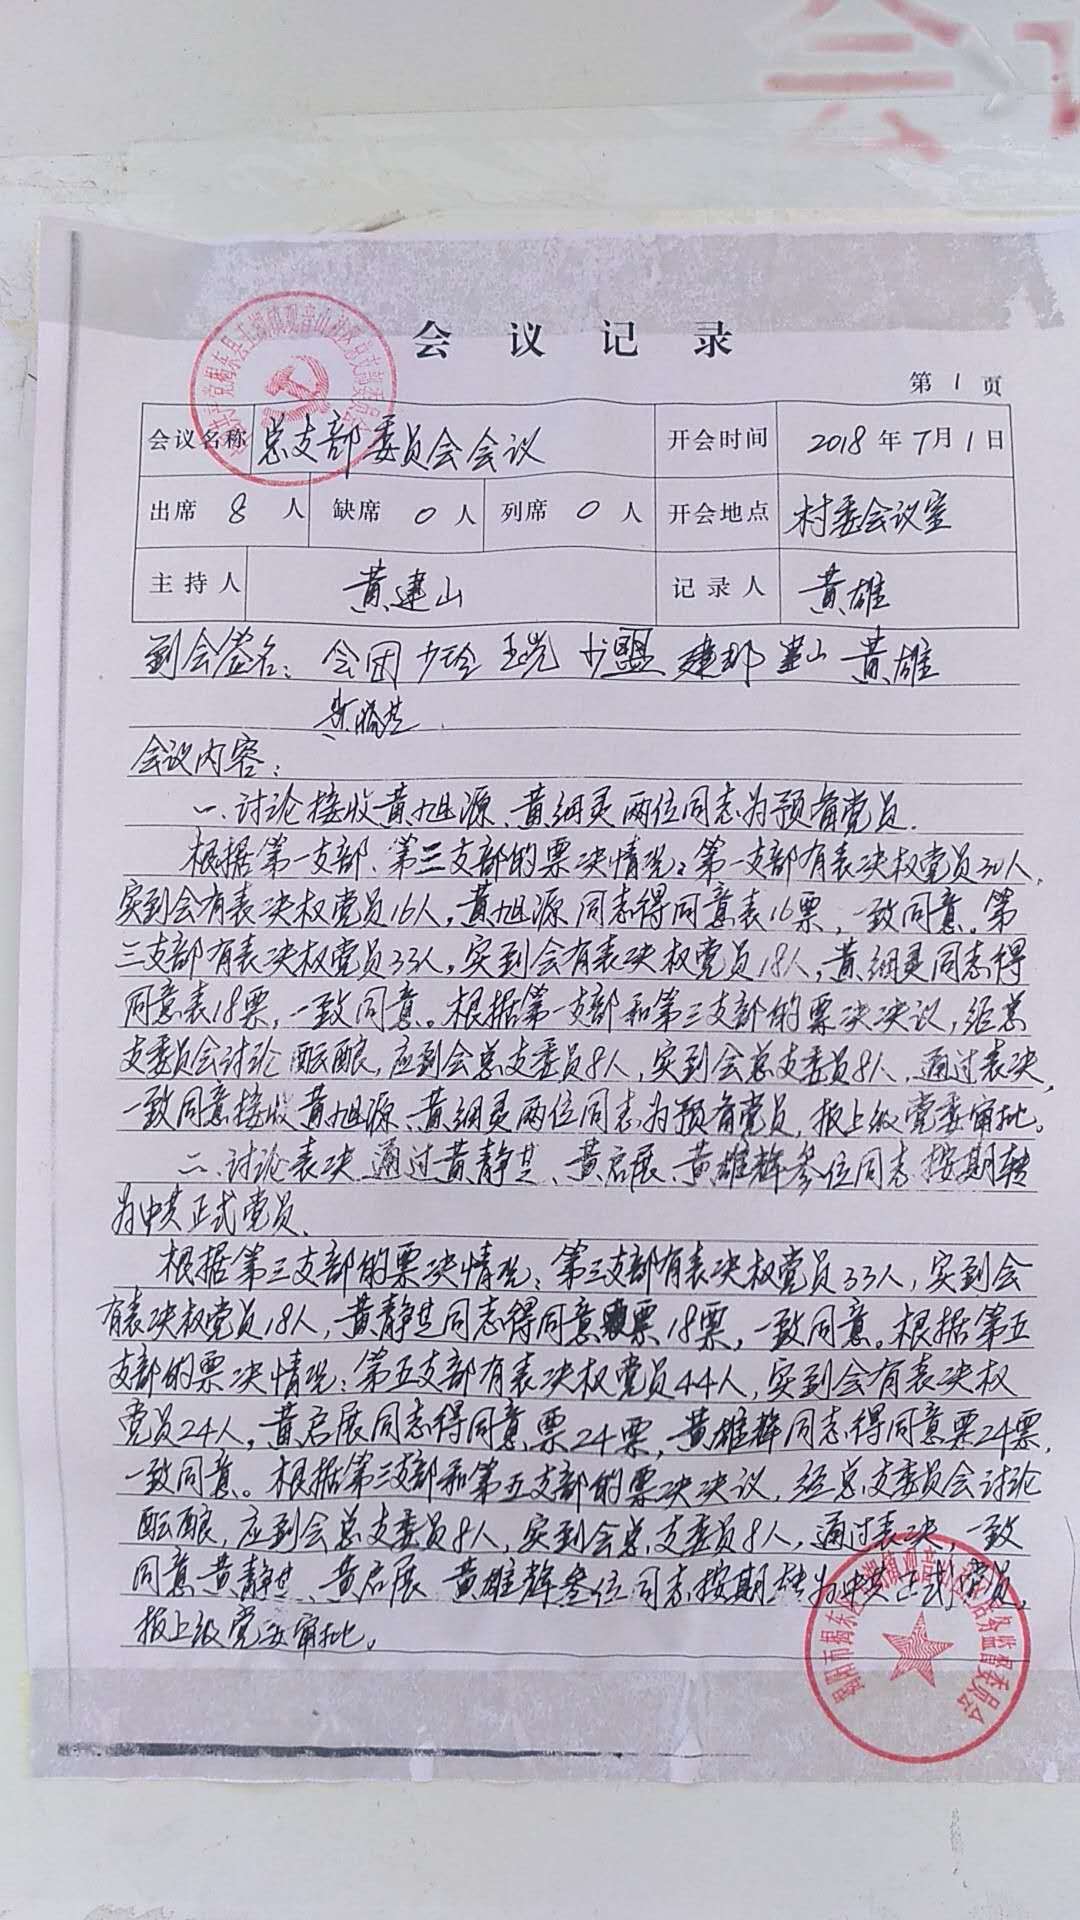 会议记录
第 1 页
会议名称 总支部委员会会议 开会时间 2018年7月1日
出席 8 人 缺席 0 人 列席 0 人 开会地点 村委会议室
主持人 黄建山 记录人 黄雄
到会签名: 会团 少玲 少盟 建郡 建山 黄雄
会议内容:
一、讨论接收黄旭源、黄细灵两位同志为预备党员.
根据第一支部、第三支部的票决情况:第一支部有表决权党员30人,
实到会有表决权党员16人,黄旭源同志得同意表16票,一致同意。第
三支部有表决权党员33人,实到会有表决权党员18人,黄细灵同志得
同意表18票,一致同意。根据第一支部和第三支部的票决决议,经总
支委员会讨论酝酿,应到会总支委员8人,实到会总支委员8人,通过表决,
一致同意接收黄旭源、黄细灵两位同志为预备党员,报上级党委审批。
二、讨论表决通过黄静芝、黄启展、黄雄辉叁位同志按期转
为中共正式党员、
根据第三支部的票决情况:第三支部有表决权党员33人,实到会
有表决权党员18人,黄静芝同志得同意票18票,一致同意。根据第五
支部的票决情况:第五支部有表决权党员44人,实到会有表决权
党员24人,黄启展同志得同意票24票,黄雄辉同志得同意票24票,
一致同意。根据第三支部和第五支部的票决决议,经总支委员会讨论
酝酿,应到会总支委员8人,实到会总支委员8人,通过表决,一致
同意黄静芝、黄启展、黄雄辉叁位同志按期转为中共正式党员,
报上级党委审批。